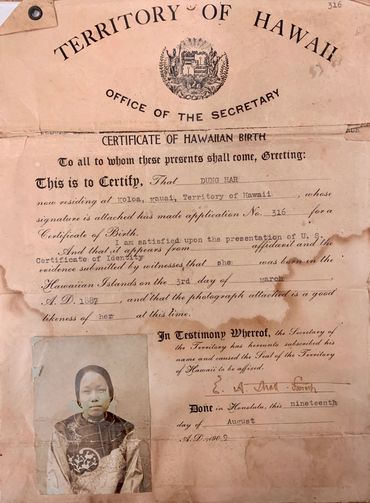 316
TERRITORY OF HAWAII
OFFICE OF THE SECRETARY
CERTIFICATE OF HAWAIIAN BIRTH
To all to whom these presents shall come, Greeting:
This is to Certify, That DUNG HAR
now residing at Koloa, Kauai, Territory of Hawaii, whose
signature is attached has made application No. 316 for a
Certificate of Birth.
I am satisfied upon the presentation of U. S.
And that it appears from affidavit and the
Certificate of Identity
evidence submitted by witnesses that she was born in the
Hawaiian Islands on the 3rd day of March
A. D. 1887, and that the photograph attached is a good
likeness of her at this time.
In Testimony Whereof, the Secretary of
the Territory has hereunto subscribed his
name and caused the Seal of the Territory
of Hawaii to be affixed.
Done in Honolulu, this nineteenth
day of August
A. D. 1909